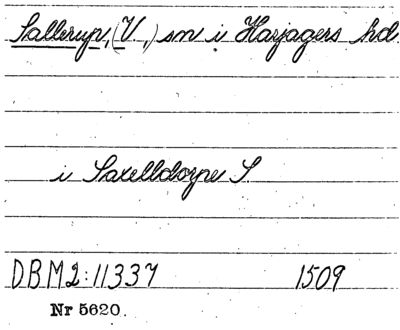 Sallerup, (V.,) sn i Harjagers hd.
i Saxelldorpe S.
DBM2:11337 1509
Nr 5620.